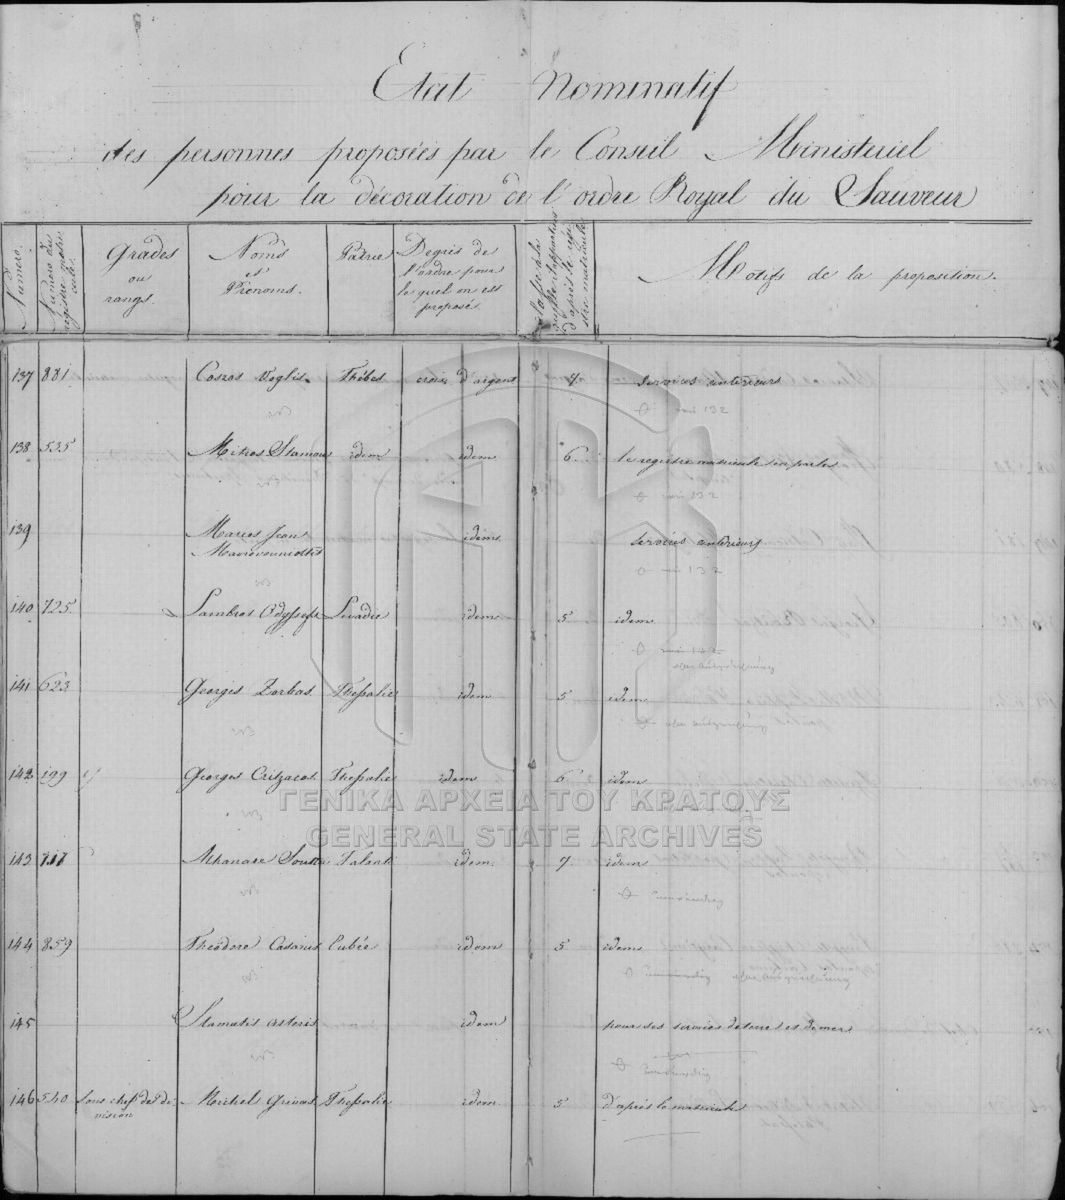 Etat Nominatif
des personnes proposées par le Conseil Ministeriel
pour la décoration de l'ordre Royal du Sauveur
Numéro.
Numéro du registre matricule.
Grades
ou
rangs.
Noms
et
Prénoms.
Patrie
Degrés de
l'ordre pour
le quel on est
proposé.
d'après le regi
stre matricule
Motifs de la proposition.
137 881 Cosras Voglis. Thèbes croix d'argent 7. Services anterieurs
132
138 535 Mitros Stamou idem idem 6 le registre matricule en parle
132
139 Marcos Jean idem services anterieurs
Mavrovouniotis
132
140 725 Lambros Odyssefs Livadie idem 5 idem
132
141 623 Georgis Zorbas. Thessalie idem 5 idem
142 199 Georges Critzacos. Thessalie idem 6 idem
143 717 Athanase Soutta Talanti idem. 7. idem
144 859 Théodore Casanis Eubée idem 5 idem
145 Stamatis Asteris idem pour ses services de terre et de mer
146 540 Sous chef de di- Michel Grivas Thessalie idem 5 d'après la matricule
vision
ΓΕΝΙΚΑ ΑΡΧΕΙΑ ΤΟΥ ΚΡΑΤΟΥΣ
GENERAL STATE ARCHIVES